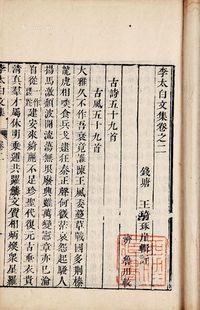 李太白文集卷之二
錢塘 王琦琢崖輯註
魯川較
古詩五十九首
古風五十九首
大雅久不作吾衰竟誰陳王風委蔓草戰國多荆榛
龍虎相啖食兵戈逮狂秦正聲何微茫哀怨起騷人
揚馬激頹波開流蕩無垠廢興雖萬變憲章亦已淪
自從建安來綺麗不足珍聖代復元古垂衣貴
清真羣才屬休明乘運共躍鱗文質相炳煥衆星羅
李太白文集 卷二